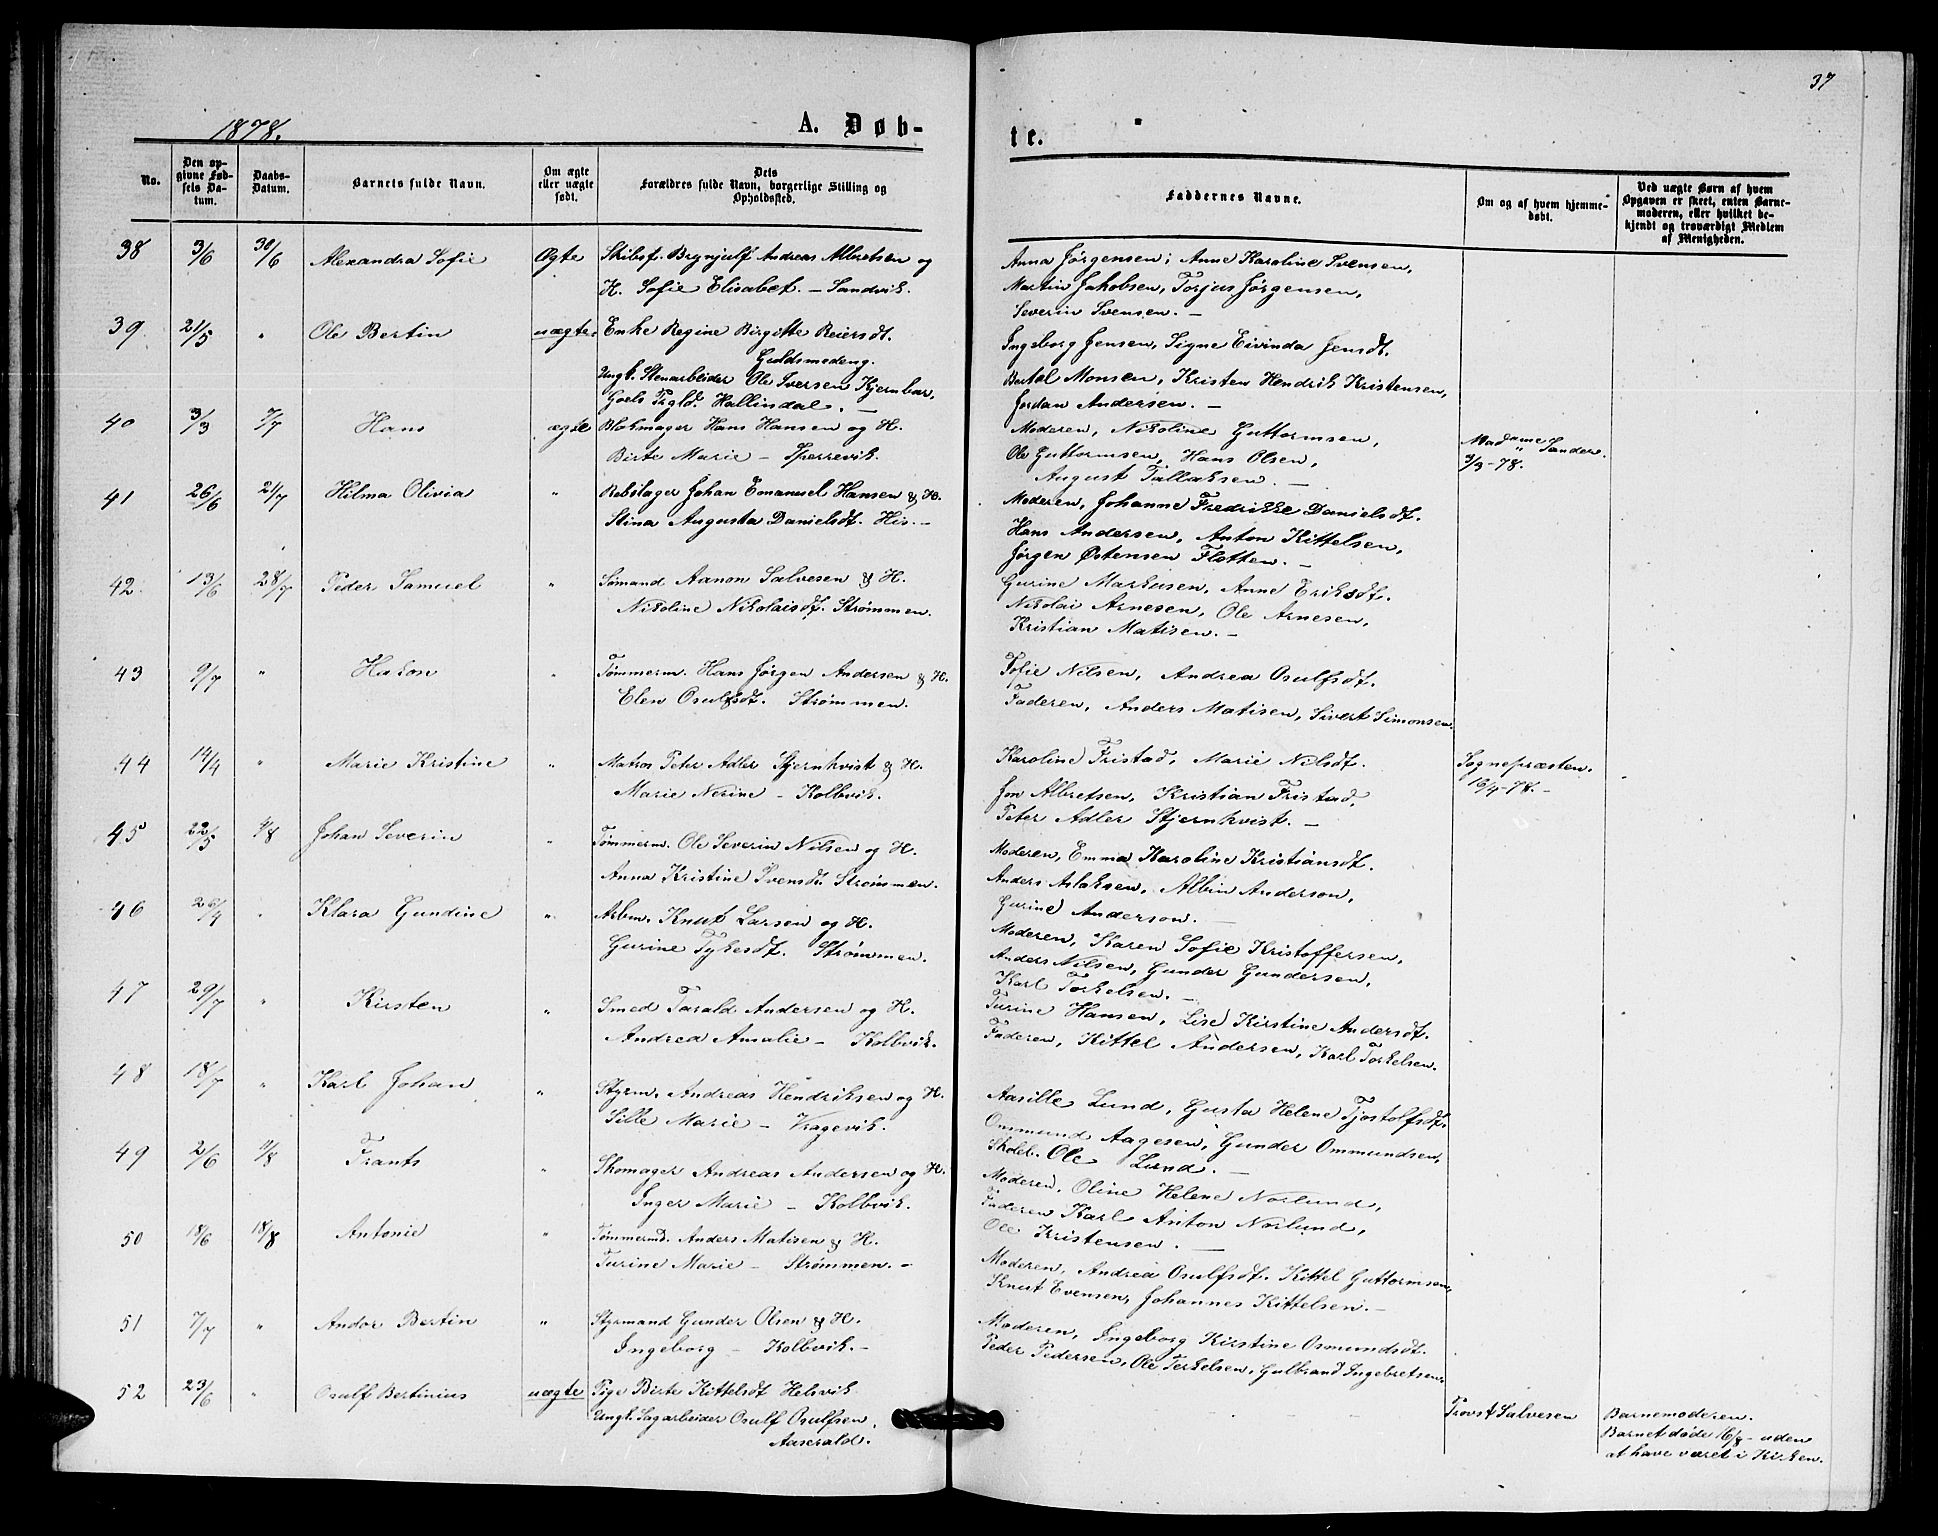 37
1878.
A. Døb-
te.
No.
Den op-
givne Fød-
sels Da-
tum.
Daabs-
Datum.
Barnets fulde Navn.
Om ægte
eller uægte
født.
Dets
Forældres fulde Navn, borgerlige Stilling og
Opholdssted.
Faddernes Navne.
Om og af hvem hjemme-
døbt.
Ved uægte Børn af hvem
Opgaven er skeet, enten Barne-
moderen, eller hvilket be-
kjendt og troværdigt Medlem
af Menigheden.
38 3/6 30/6 Alexandra Sofie Ægte Skibsf. Brynjulf Andreas Albretsen og
H. Sofie Elisabet. — Sandvik.
Anna Jørgensen; Anne Karoline Svensen,
Martin Jakobsen, Torjus Jørgensen,
Severin Svensen. —
39 21/5 " Ole Bertin uægte Enke Regine Birgitte Reiersdt.
Guldsmedeng.
Ungk. Stenarbeider Ole Iversen Kjernbar,
Goels Prgld. Hallindal. —
Ingeborg Jensen, Signe Eivinda Jensdt.
Bertel Monsen, Kristen Hendrik Kristensen,
Jordan Andersen. —
40 3/3 7/7 Hans ægte Blokmager Hans Hansen og H.
Birte Marie — Sperrevik.
Moderen, Nikoline Guttormsen,
Ole Guttormsen, Hans Olsen,
August Tallaksen. —
Madame Sander.
3/3-78.
41 26/6 21/7 Hilma Olivia " Rebslager Johan Emanuel Hansen & H.
Stina Augusta Danielsdt. His. —
Moderen, Johanne Fredrikke Danielsdt.
Hans Andersen, Anton Kittelsen,
Jørgen Østensen Fløtten. —
42. 13/6 28/7 Peder Samuel " Sømand Aanon Salvesen & H.
Nikoline Nikolaisdt. Strømmen.
Gurine Markusen, Anne Eriksdt.
Nikolai Arnesen, Ole Arnesen,
Kristian Matisen. —
43 9/7 " Hakon " Tømmerm. Hans Jørgen Andersen & H.
Elen Osulfsdt. Strømmen.
Sofie Nilsen, Andrea Osulfsdt.
Faderen, Anders Matisen, Sivert Simonsen.
44 14/4 " Marie Kristine " Matros Peter Adler Stjernkvist & H.
Marie Nerine — Kolbvik.
Karoline Fristad, Marie Nilsdt.
Jon Albretsen, Kristian Fristad,
Peter Adler Stjernkvist. —
Sognepræsten.
16/4-78. —
45 22/5 4/8 Johan Severin " Tømmerm. Ole Severin Nilsen og H.
Anna Kristine Svensdt. Strømmen.
Moderen, Emma Karoline Kristiansdt.
Anders Aslaksen, Albin Anderson,
Gurine Anderson. —
46 26/4 " Klara Gundine " Arbm. Knut Larsen og H.
Gurine Tykesdt. Strømmen.
Moderen, Karen Sofie Kristoffersen,
Anders Nilsen, Gunder Gundersen,
Karl Torkelsen. —
47 29/7 " Kirsten " Smed Tarald Andersen og H.
Andrea Amalie — Kolbvik.
Turine Hansen, Lise Kirstine Andersdt.
Faderen, Kittel Andersen, Karl Torkelsen.
48 18/7 " Karl Johan " Styrm. Andreas Hendriksen og H.
Sille Marie — Kragevik.
Aasille Lund, Gusta Helene Tjostolfsdt.
Ommund Aagesen, Gunder Ommundsen,
Skolel. Ole Lund. —
49 2/6 11/8 Frants " Skomager Andreas Andersen og H.
Inger Marie — Kolbvik.
Moderen, Oline Helene Norlund,
Faderen Karl Anton Norlund,
Ole Kristensen. —
50 18/6 18/8 Antonie " Tømmermd. Anders Matisen & H.
Turine Marie — Strømmen. —
Moderen, Andrea Osulfsdt. Kittel Guttormsen,
Knut Evensen, Johannes Kittelsen. —
51 7/7 " Andor Bertin " Styrmand Gunder Olsen & H.
Ingeborg — Kolbvik. —
Moderen, Ingeborg Kirstine Osmundsdt.
Peder Pedersen, Ole Terkelsen, Gulbrand Ingebretsen.
52 23/6 " Osulf Bertinius uægte Pige Birte Kittelsdt Helsvik
Ungk. Sagarbeider Osulf Osulfsen,
Aaserald.
Provst Salvesen
Barnemoderen.
Barnet døde 16/8 - uden
at have været i Kirken.